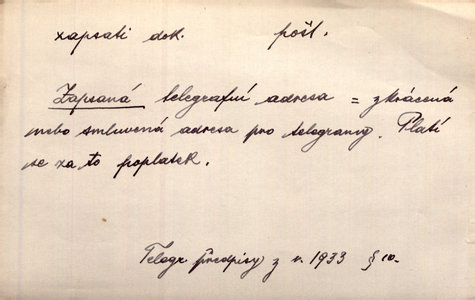 zapsati dok. pošt.
Zapsaná telegrafní adresa = zkrácená
nebo smluvená adresa pro telegramy. Platí
se za to poplatek.
Telegr předpisy z r. 1933 § 10.